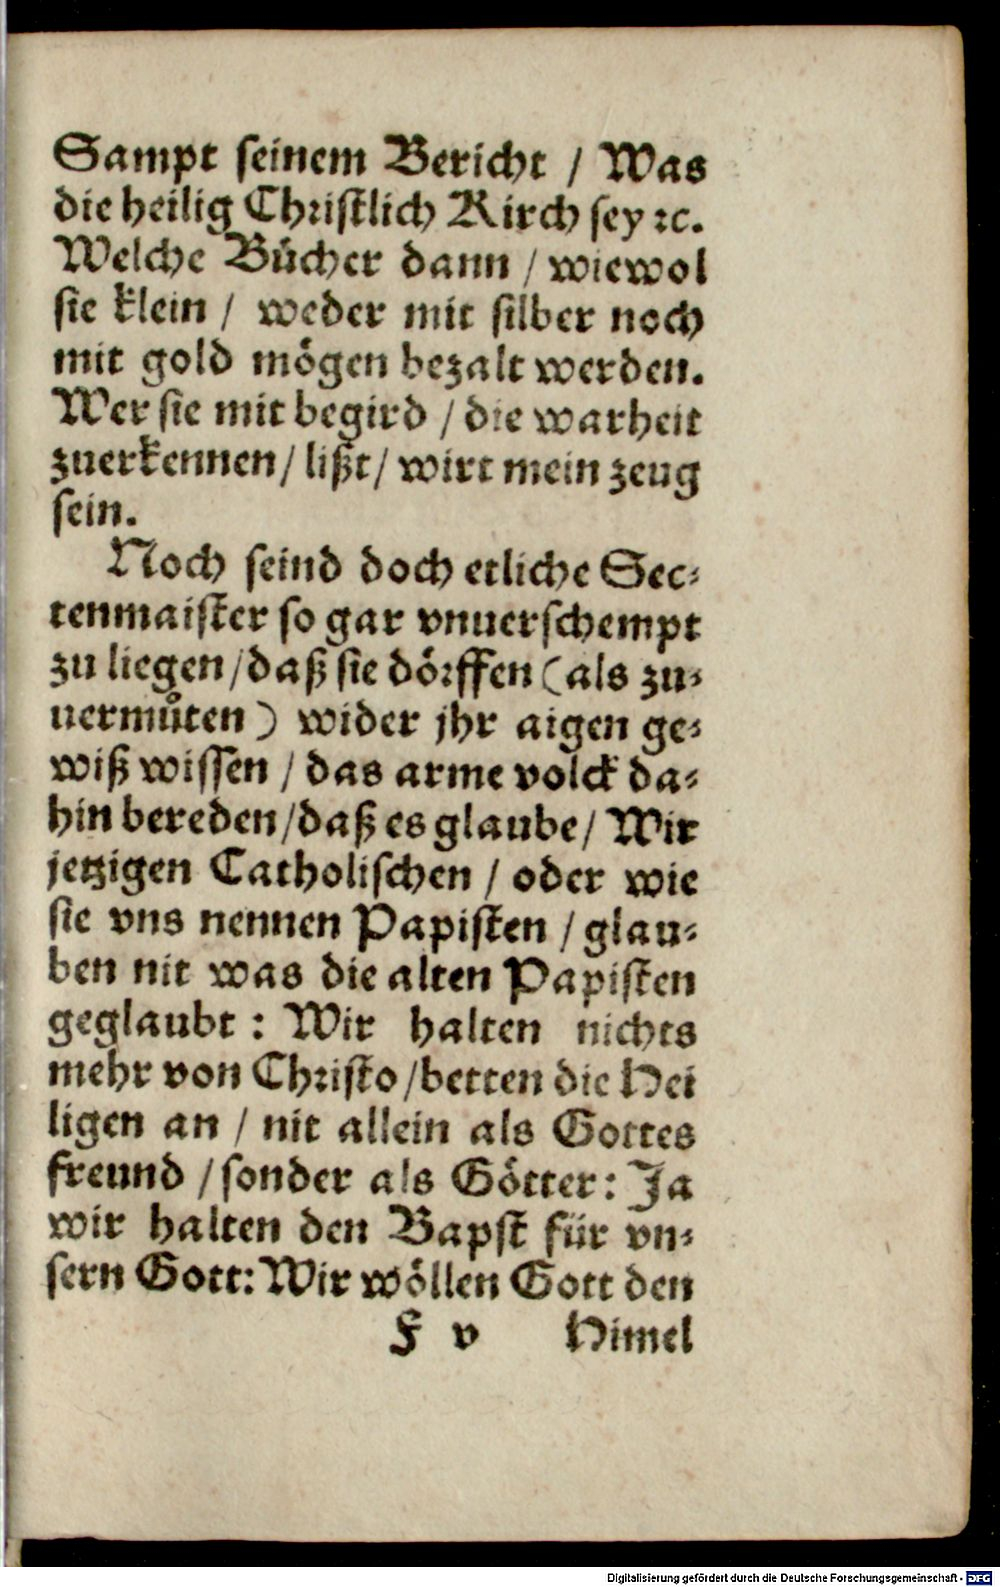 Sampt seinem Bericht / Was
die heilig Christlich Kirch sey ꝛc.
Welche Bücher dann / wiewol
sie klein / weder mit silber noch
mit gold mögen bezalt werden.
Wer sie mit begird / die warheit
zuerkennen / lißt / wirt mein zeug
sein.
Noch seind doch etliche Sec⸗
tenmaister so gar vnuerschempt
zu liegen / daß sie dörffen (als zu⸗
uermůten) wider jhr aigen ge⸗
wiß wissen / das arme volck da⸗
hin bereden / daß es glaube / Wir
jetzigen Catholischen / oder wie
sie vns nennen Papisten / glau⸗
ben nit was die alten Papisten
geglaubt : Wir halten nichts
mehr von Christo / betten die Hei
ligen an / nit allein als Gottes
freund / sonder als Götter: Ja
wir halten den Bapst für vn⸗
sern Gott: Wir wöllen Gott den
F v Himel
Digitalisierung gefördert durch die Deutsche Forschungsgemeinschaft - DFG